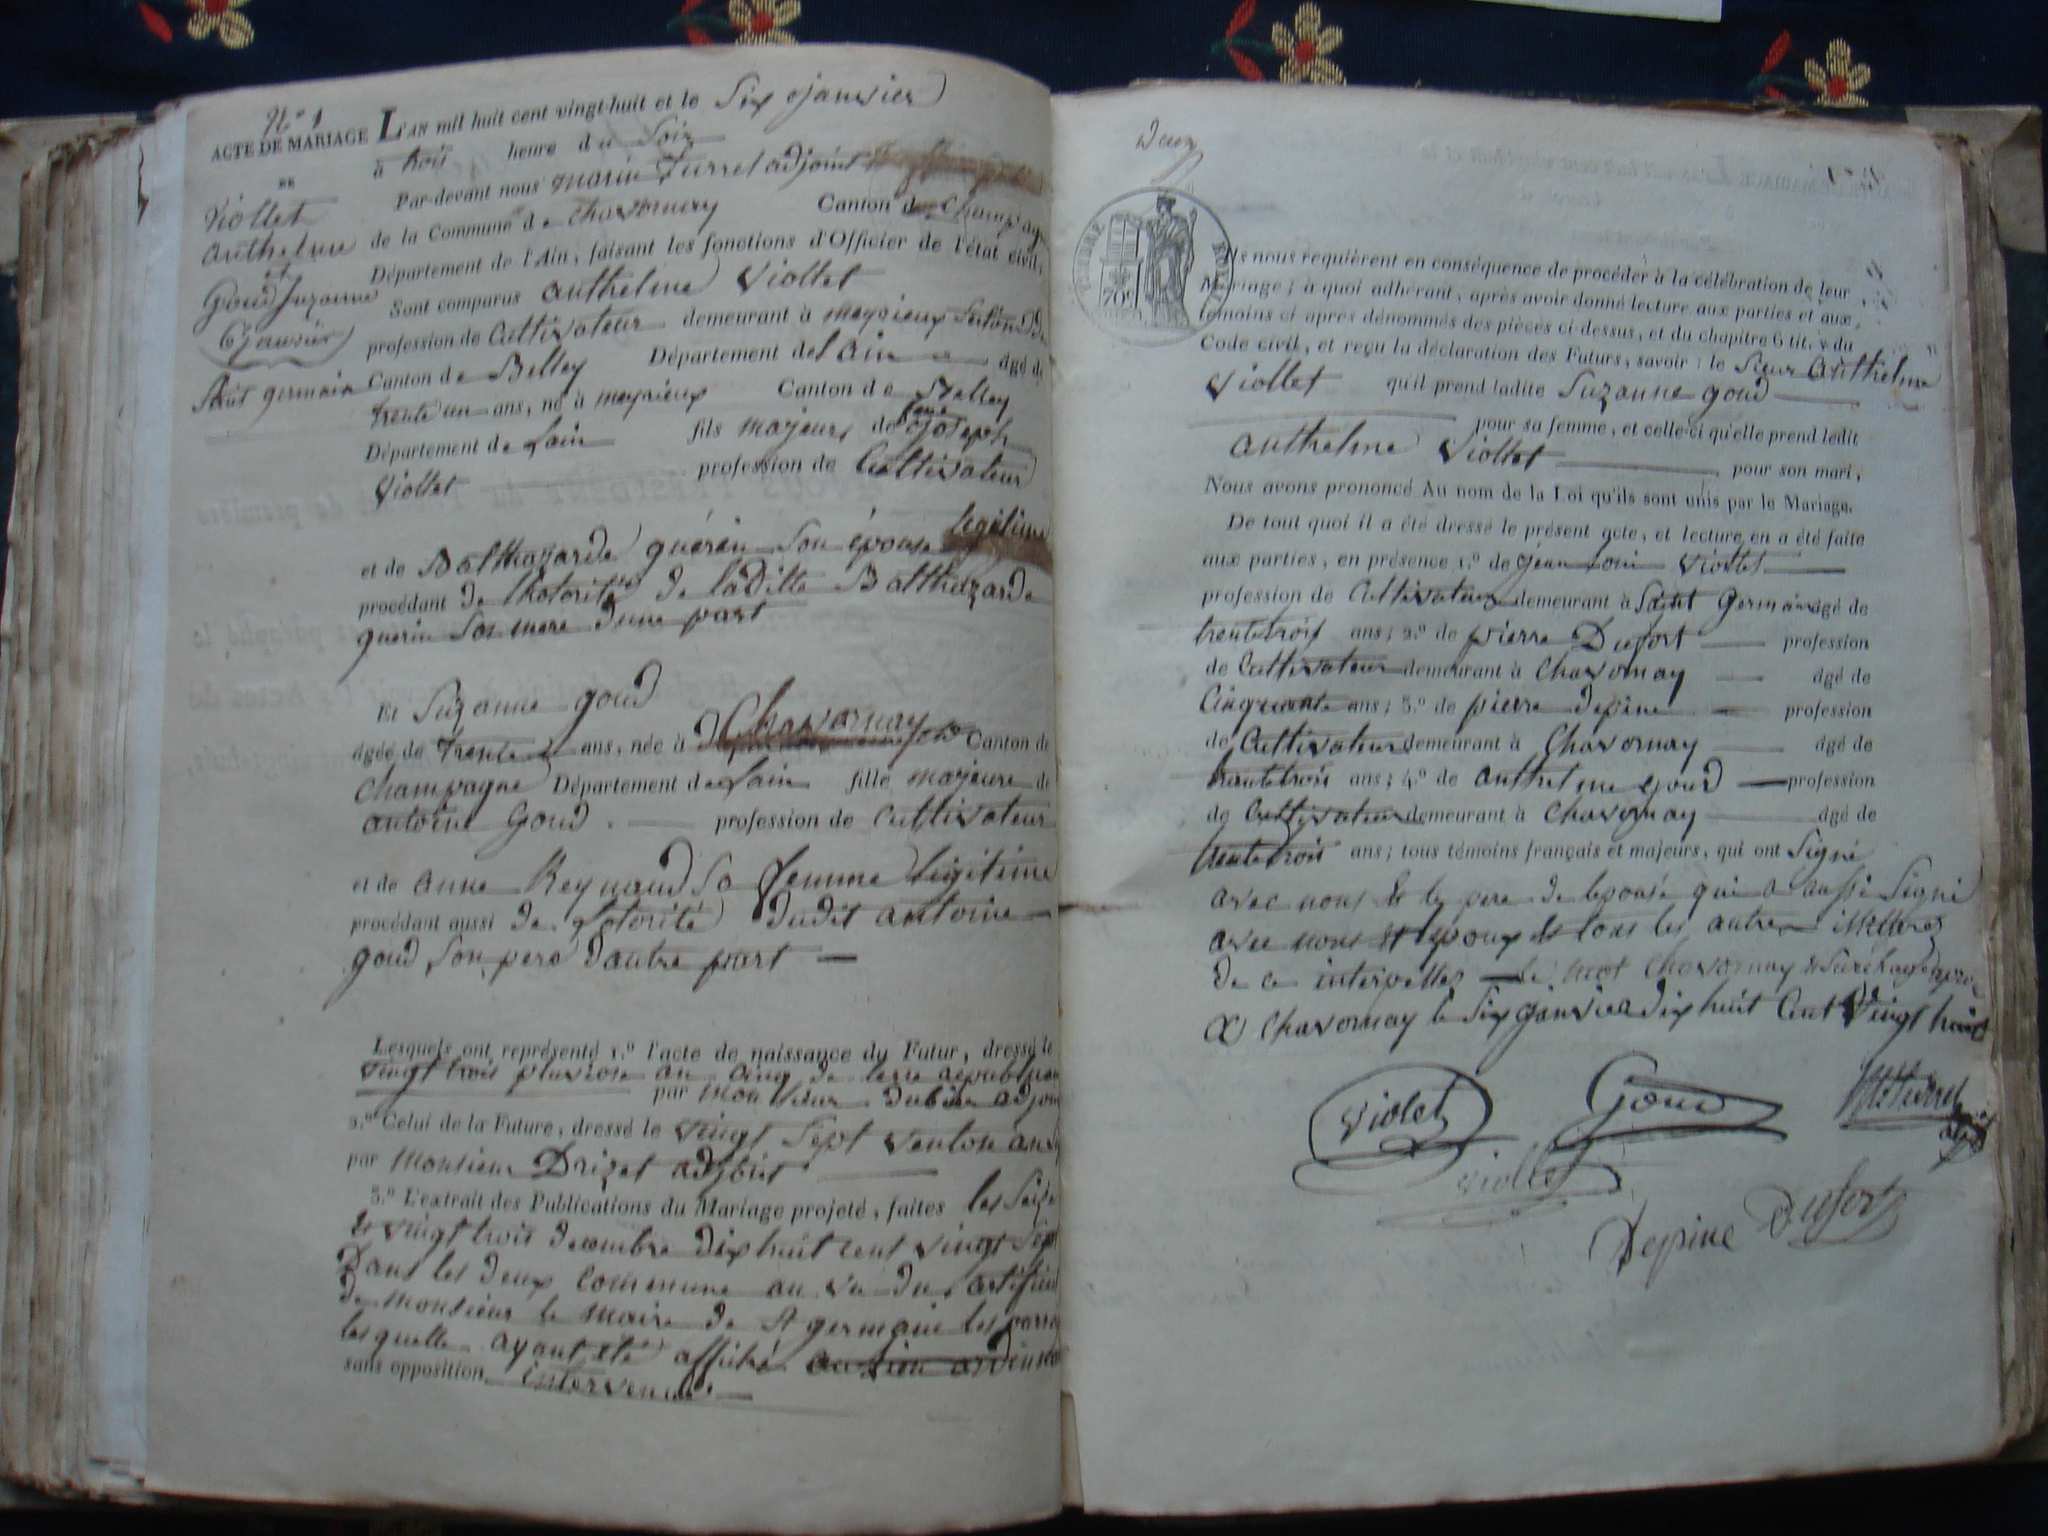 N.º 1
ACTE DE MARIAGE
DE
Viollet
Anthelme
et
Goud Suzanne
6 janvier
Saint germain
L'AN mil huit cent vingt-huit et le Six janvier
à trois heure du Soir
Par-devant nous marin Turrel adjoint
de la Commune de chavornay Canton de Champag
Département de l'Ain, faisant les fonctions d'Officier de l'état civil,
Sont comparus anthelme Viollet
profession de Cultivateur demeurant à meyrieux
Canton de Belley Département de lain âgé de
trente un ans, né à meyrieux Canton de Belley
Département de Lain fils majeur de feu joseph
Viollet profession de Cultivateur
et de Balthazarde guérin Son épouse légitime
procédant de lhotorité de laditte Balthazarde
guerin Son mere dune part
Et Suzanne goud
âgée de trente ans, née à Chavornay Canton de
Champagne Département de Lain fille majeure de
antoine Goud profession de Cultivateur
et de anne Reynaud Sa femme légitime
procédant aussi de Lotorité dudit antoine
goud Son pere dautre part
Lesquels ont représenté 1.º l'acte de naissance du Futur, dressé le
vingt trois pluviose an cinq de lerre republicai
par monsieur dubin adjoin
2.º Celui de la Future, dressé le vingt Sept ventose an
par Monsieur Drizet adjoint
3.º L'extrait des Publications du Mariage projeté, faites les Seize
& vingt trois decembre dix huit cent vingt Sept
Dans les deux commune au vu du Certificat
de monsieur le maire de St germain les parro
lesquelle ayant été affiché
sans opposition intervenue
Deux
TIMBRE ROYAL
70c
Ils nous requièrent en conséquence de procéder à la célébration de leur
Mariage; à quoi adhérant, après avoir donné lecture aux parties et aux
témoins ci après dénommés des pièces ci-dessus, et du chapitre 6 tit. v du
Code civil, et reçu la déclaration des Futurs, savoir: le Sieur Anthelme
Viollet qu'il prend ladite Suzanne goud
pour sa femme, et celle-ci qu'elle prend ledit
anthelme Viollet pour son mari,
Nous avons prononcé Au nom de la Loi qu'ils sont unis par le Mariage.
De tout quoi il a été dressé le présent acte, et lecture en a été faite
aux parties, en présence 1.º de jean Loui Viollet
profession de Cultivateur demeurant à Saint Germain âgé de
trente trois ans; 2.º de pierre Dufort profession
de Cultivateur demeurant à Chavornay âgé de
Cinquante ans; 3.º de pierre depine profession
de Cultivateur demeurant à Chavornay âgé de
trente trois ans; 4.º de anthelme goud profession
de Cultivateur demeurant à Chavornay âgé de
trente trois ans; tous témoins français et majeurs, qui ont Signé
avec nous & le pere de lepousé qui a aussi Signé
avec nous & lepoux & tous les autre illettrez
de ce interpelles le mot Chavornay & Suréhargé apro
a Chavornay le Six janvier dix huit Cent Vingt huit
Violet
Goud
M. Turrel
adj
Viollet
Depine
Dufort